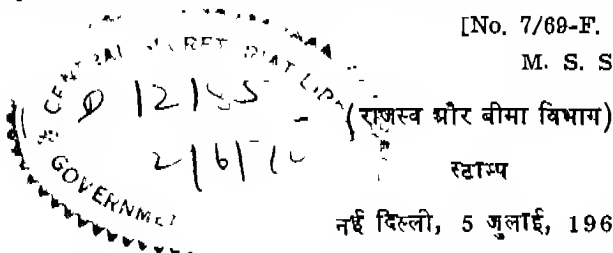 [No. 7/69-F.
M. S. S
CENTRAL SECRETARIAT
GOVERNME
(राजस्व और बीमा विभाग)
स्टाम्प
नई दिल्ली, 5 जुलाई, 196